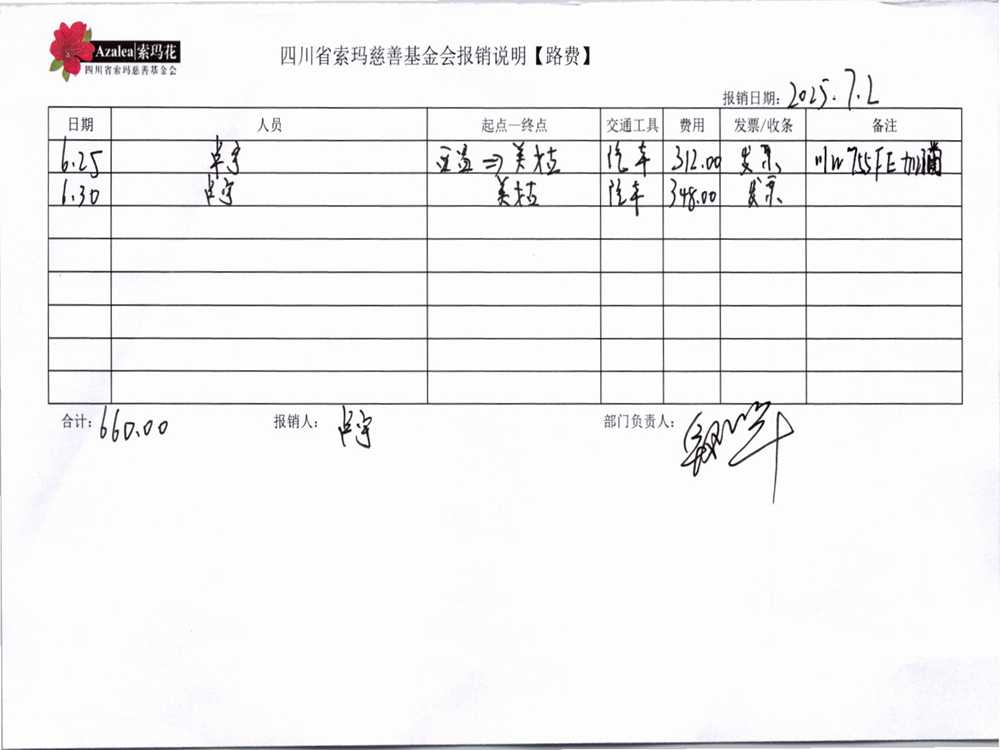 Azalea|索玛花
四川省索玛慈善基金会
四川省索玛慈善基金会报销说明【路费】
报销日期: 2025.7.2
日期 人员 起点—终点 交通工具 费用 发票/收条 备注
6.25 卢宇 ⇒美姑 汽车 312.00 发票 川W755FE加油
6.30 卢宇 美姑 汽车 348.00 发票
合计: 660.00 报销人: 卢宇 部门负责人: